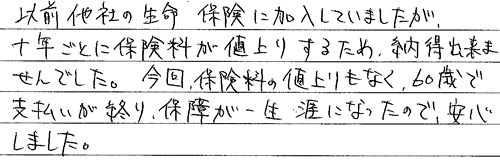 以前他社の生命保険に加入していましたが、
十年ごとに保険料が値上りするため、納得出来ま
せんでした。今回、保険料の値上りもなく、60歳で
支払いが終り、保障が一生涯になったので、安心
しました。